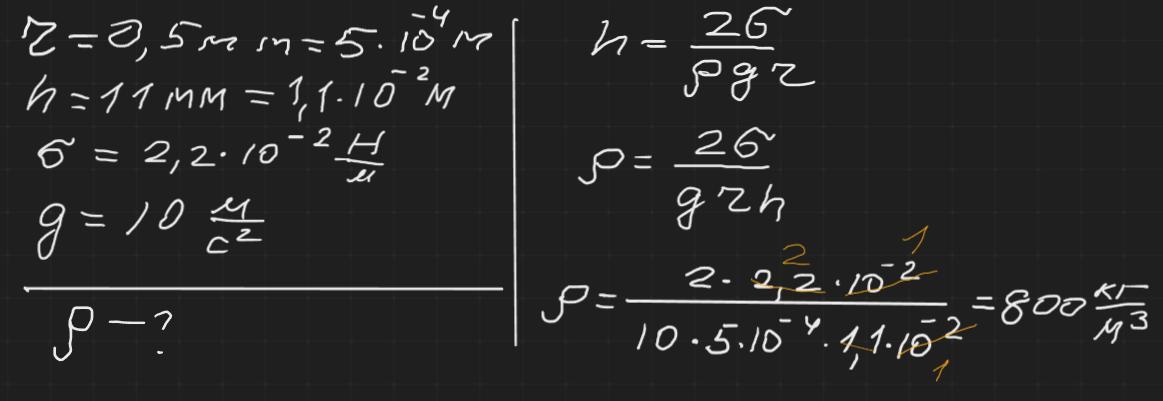 r = 0,5 мм = 5·10⁻⁴ м
h = 11 мм = 1,1·10⁻² м
σ = 2,2·10⁻² Н/м
g = 10 м/с²
ρ – ?
h = 2σ/ρgr
ρ = 2σ/grh
ρ = (2·2,2·10⁻²)/(10·5·10⁻⁴·1,1·10⁻²) = 800 кг/м³
2 1
1